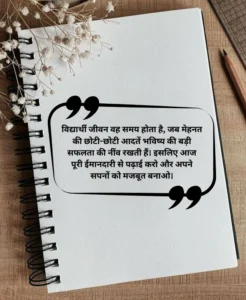 विद्यार्थी जीवन वह समय होता है, जब मेहनत
की छोटी-छोटी आदतें भविष्य की बड़ी
सफलता की नींव रखती हैं। इसलिए आज
पूरी ईमानदारी से पढ़ाई करो और अपने
सपनों को मजबूत बनाओ।